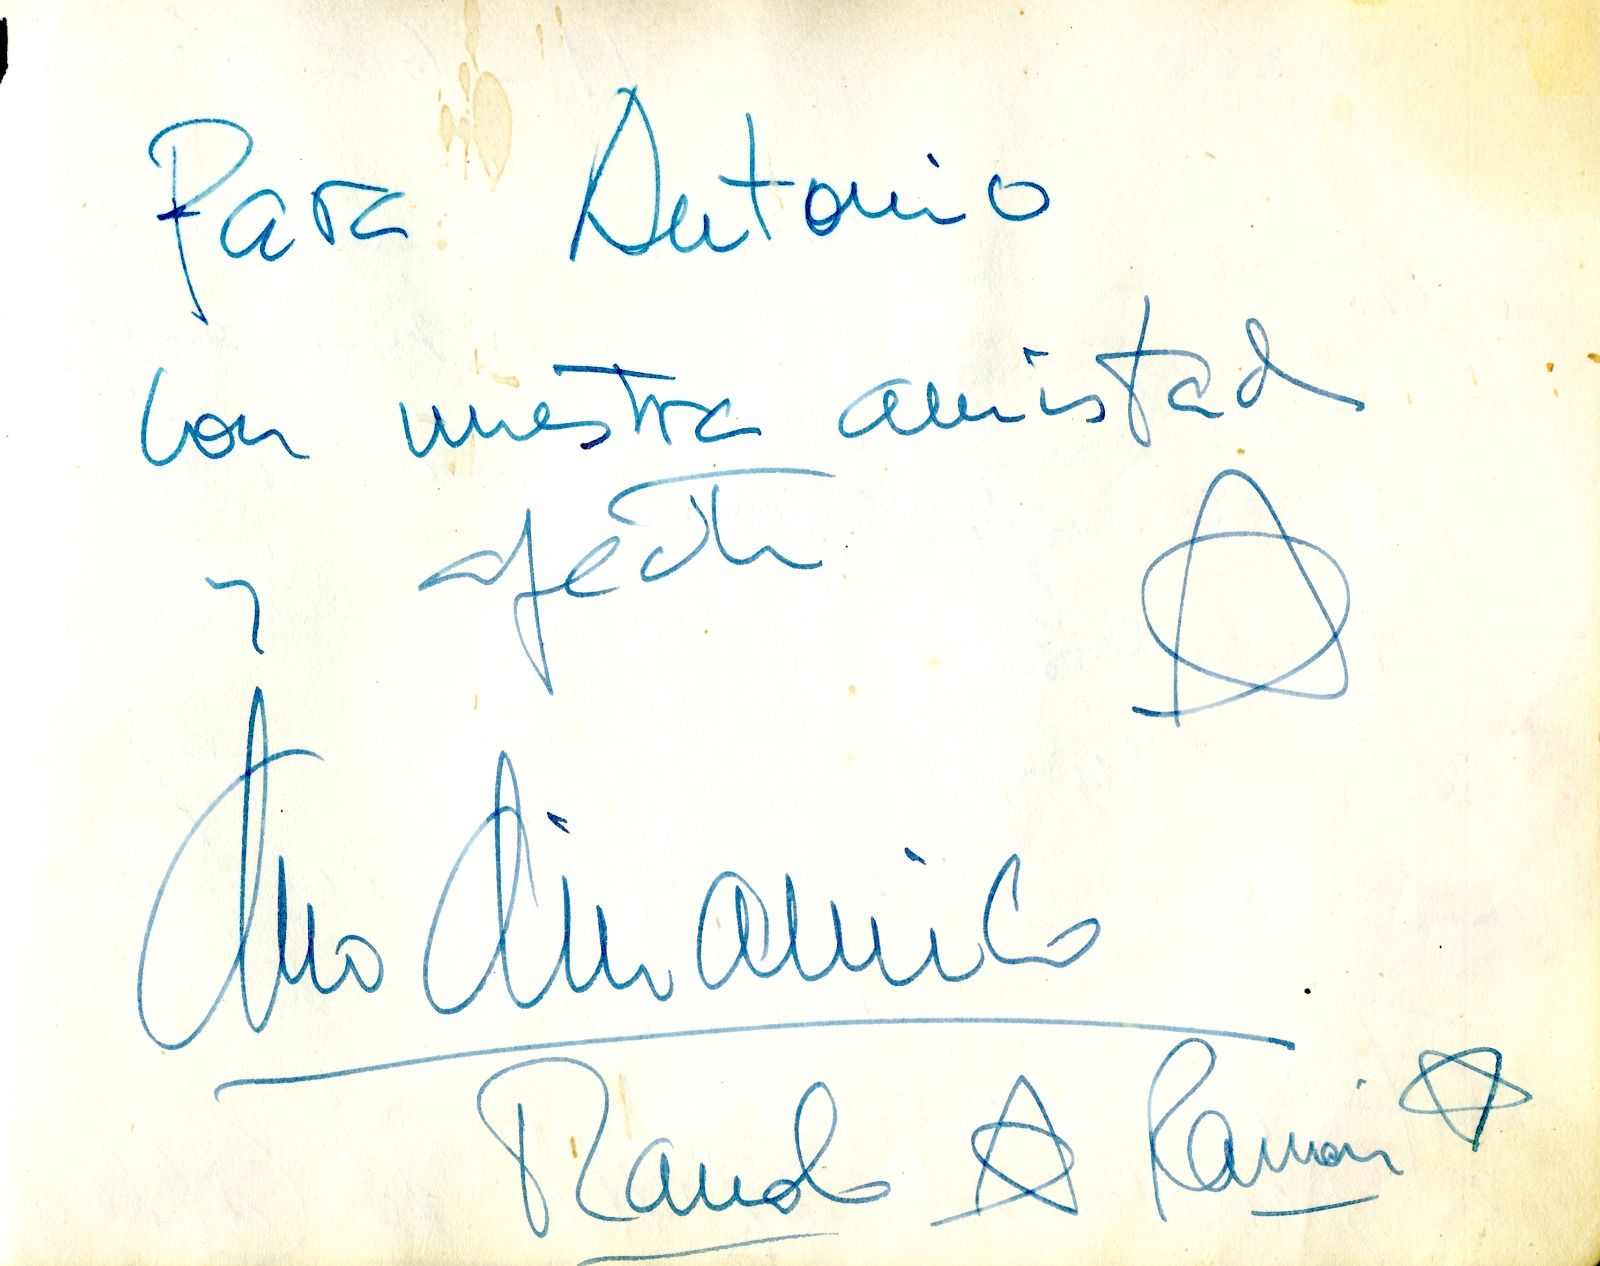 Para Antonio
Con nuestra amistad
y afecto
Duo dinamico
Manolo Ramón